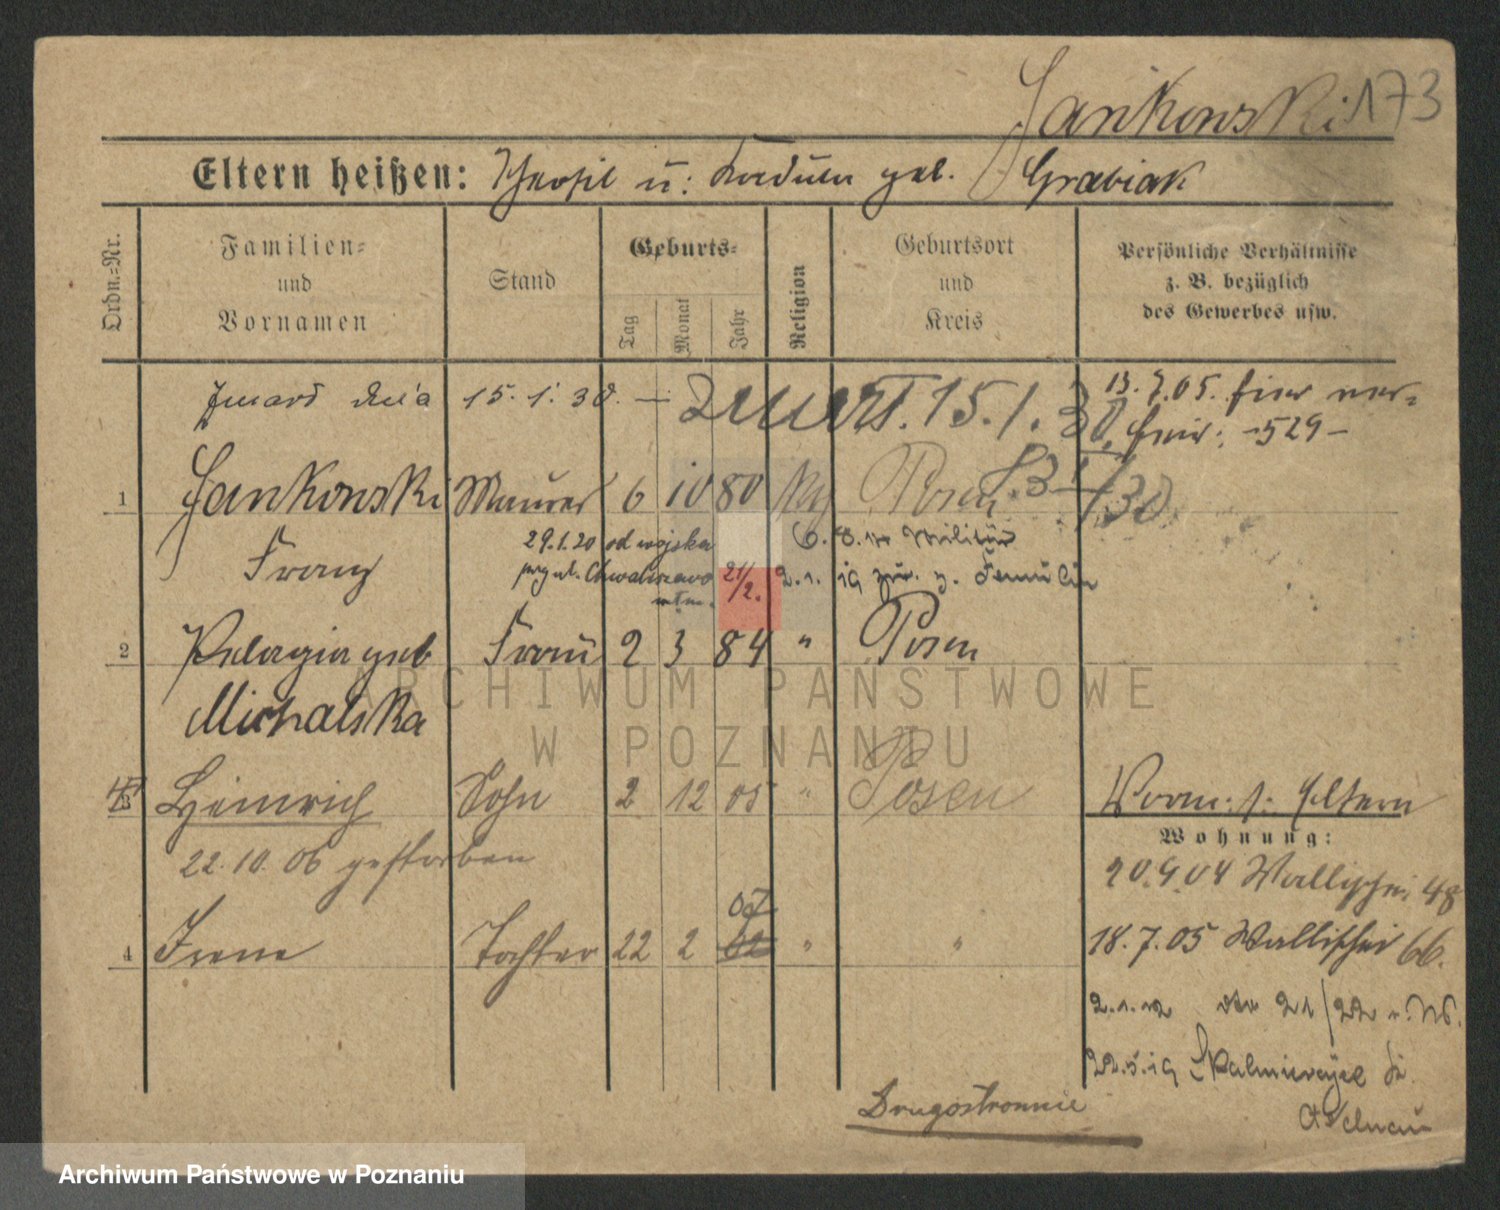 Jankowski 173
Eltern heißen: Theofil u: geb. Grabiak
Ordn.-Nr.
Familien-
und
Vornamen
Stand
Geburts-
Tag
Monat
Jahr
Religion
Geburtsort
und
Kreis
Persönliche Verhältnisse
z. B. bezüglich
des Gewerbes usw.
15. 1. 30. 15. 1. 30
13. 7. 05. hier
-529-
1 Jankowski Maurer 6 10 80 Posen
29.1.20 od wojska
6. 8. Militär
Franz
21/2. 2. 1. 19 zur. z. Familie
2 Pelagia geb Frau 2 3 84 " Posen
Michalska
3 Heinrich Sohn 2 12 05 " Posen Vorm: s: Eltern
Wohnung:
22. 10. 06 gestorben
20.9.04 Wallischei 48
07
4 Irene Tochter 22 2 02 " " 18. 7. 05 Wallischei 66.
2. 1. 12 21/22
22.5.19 Skalmierzyce
Adelnau
Drugostronnie
ARCHIWUM PAŃSTWOWE
W POZNANIU
Archiwum Państwowe w Poznaniu